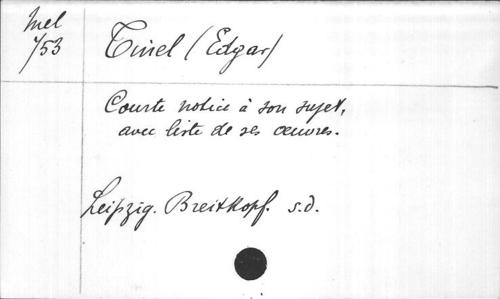 Mel
753
Tinel (Edgar)
Courte notice à son sujet,
avec liste de ses œuvres.
Leipzig. Breitkopf. s.d.